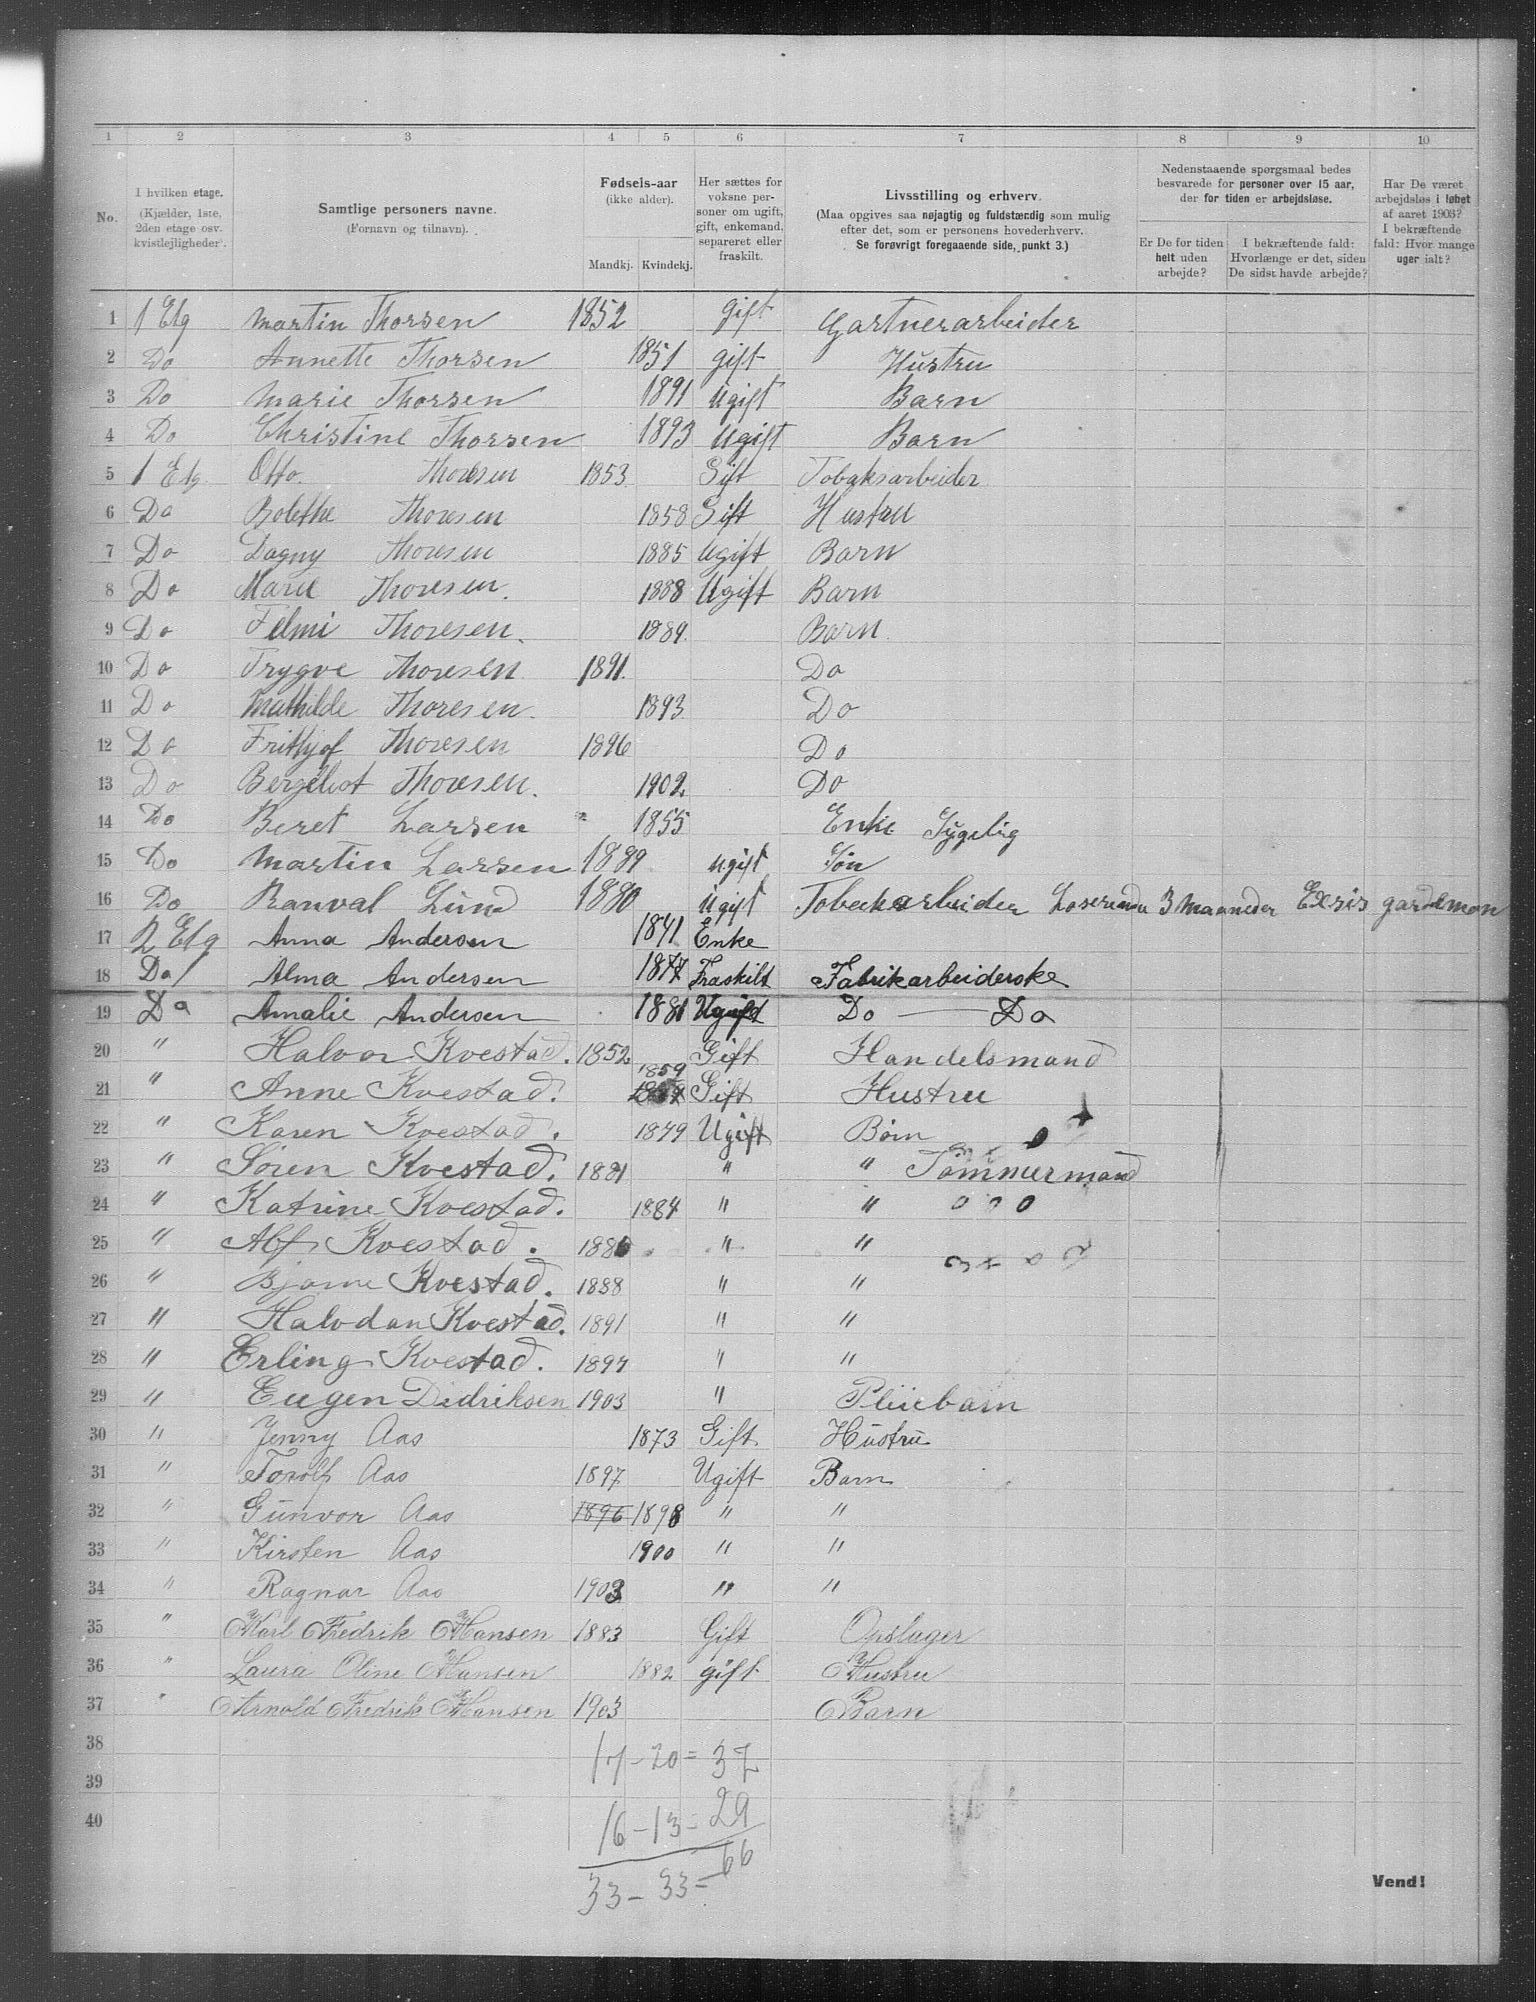 1 2 3 4 5 6 7 8 9 10
No.
I hvilken etage. (Kjælder, 1ste, 2den etage osv. kvistlejligheder).
Samtlige personers navne. (Fornavn og tilnavn).
Fødsels-aar (ikke alder). Mandkj. Kvindekj.
Her sættes for voksne personer om ugift, gift, enkemand, separeret eller fraskilt.
Livsstilling og erhverv. (Maa opgives saa nøjagtig og fuldstændig som mulig efter det, som er personens hovederhverv. Se forøvrigt foregaaende side, punkt 3.)
Nedenstaaende spørgsmaal bedes besvarede for personer over 15 aar, der for tiden er arbejdsløse.
Er De for tiden helt uden arbejde?
I bekræftende fald: Hvorlænge er det, siden De sidst havde arbejde?
Har De været arbejdsløs i løbet af aaret 1903? I bekræftende fald: Hvor mange uger ialt?
1 1 Etg Martin Thorsen 1852 gift Gartnerarbeider
2 Do Annette Thorsen 1851 gift Hustru
3 Do Marie Thorsen 1891 Ugift Barn
4 Do Christine Thorsen 1893 Ugift Barn
5 1 Etg Otto Thoresen 1853 Gift Tobaksarbeider
6 Do Bolethe Thoresen 1858 Gift Hustru
7 Do Dagny Thoresen 1885 Ugift Barn
8 Do Marie Thoresen. 1888 Ugift Barn
9 Do Thoresen. 1889 Barn
10 Do Trygve Thoresen 1891. Do
11 Do Mathilde Thoresen. 1893 Do
12 Do Frithjof Thoresen 1896 Do
13 Do Thoresen. 1902 Do
14 Do Beret Larsen " 1855 Enke Sygelig
15 Do Martin Larsen 1889 ugift Søn
16 Do Ranval Lund 1880 Ugift Tobaksarbeider 3 Maaneder
17 2 Etg Anna Andersen 1841 Enke
18 Do Alma Andersen 1877 Fraskilt Fabrikarbeiderske
19 Do Amalie Andersen 1881 Ugift Do — Do
20 " Halvor Kvestad. 1852 Gift Handelsmand
21 " Anne Kvestad. 1859 Gift Hustru
22 " Karen Kvestad. 1879 Ugift Børn
23 " Søren Kvestad. 1881 " " Tømmermand
24 " Katrine Kvestad. 1884 " "
25 " Alf Kvestad. 1886 " "
26 " Bjarne Kvestad. 1888 " "
27 " Halvdan Kvestad. 1891 " "
28 " Erling Kvestad. 1897 " "
29 " Eugen Didriksen 1903 " Pleiebarn
30 " Jenny Aas 1873 Gift Hustru
31 " Torolf Aas 1897 Ugift Barn
32 " Gunvor Aas 1896 1898 " "
33 " Kirsten Aas 1900 " "
34 " Ragnar Aas 1903 " "
35 " Karl Fredrik Hansen 1883 Gift Opslager
36 " Laura Oline Hansen 1882 gift Hustru
37 " Arnold Fredrik Hansen 1903 Barn
38 17 - 20 = 37
39
40 16 - 13 = 29
33 - 33 = 66
Vend!